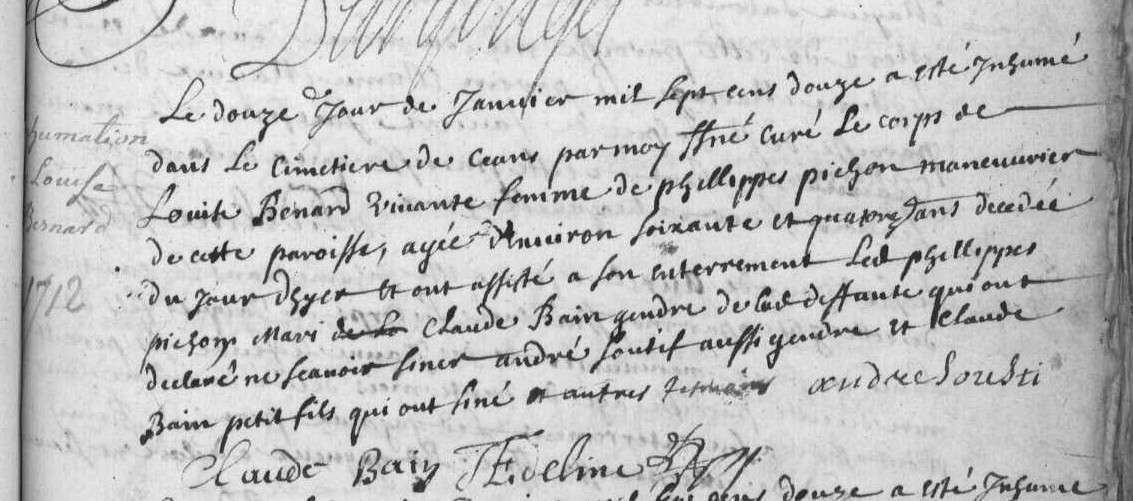 Le douze Jour de Janvier mil sept cens douze a esté Inhumé
dans le cimetiere de ceans par moy ssné curé le corps de
Louise Benard vivante femme de phellippes pichon maneuvrier
de cette paroisse, agée d'environ soixante et quatorze ans decedée
du jour d'hyer et ont assisté a son enterrement led phellippes
pichon mari de la Claude Bain gendre de lad deffunte qui ont
declaré ne scavoir siner andré soutif aussi gendre et Claude
Bain petit fils qui ont siné et autres temoins andre
Claude Bain
humation
Louise
Bernard
1712
douze a esté Inhumé